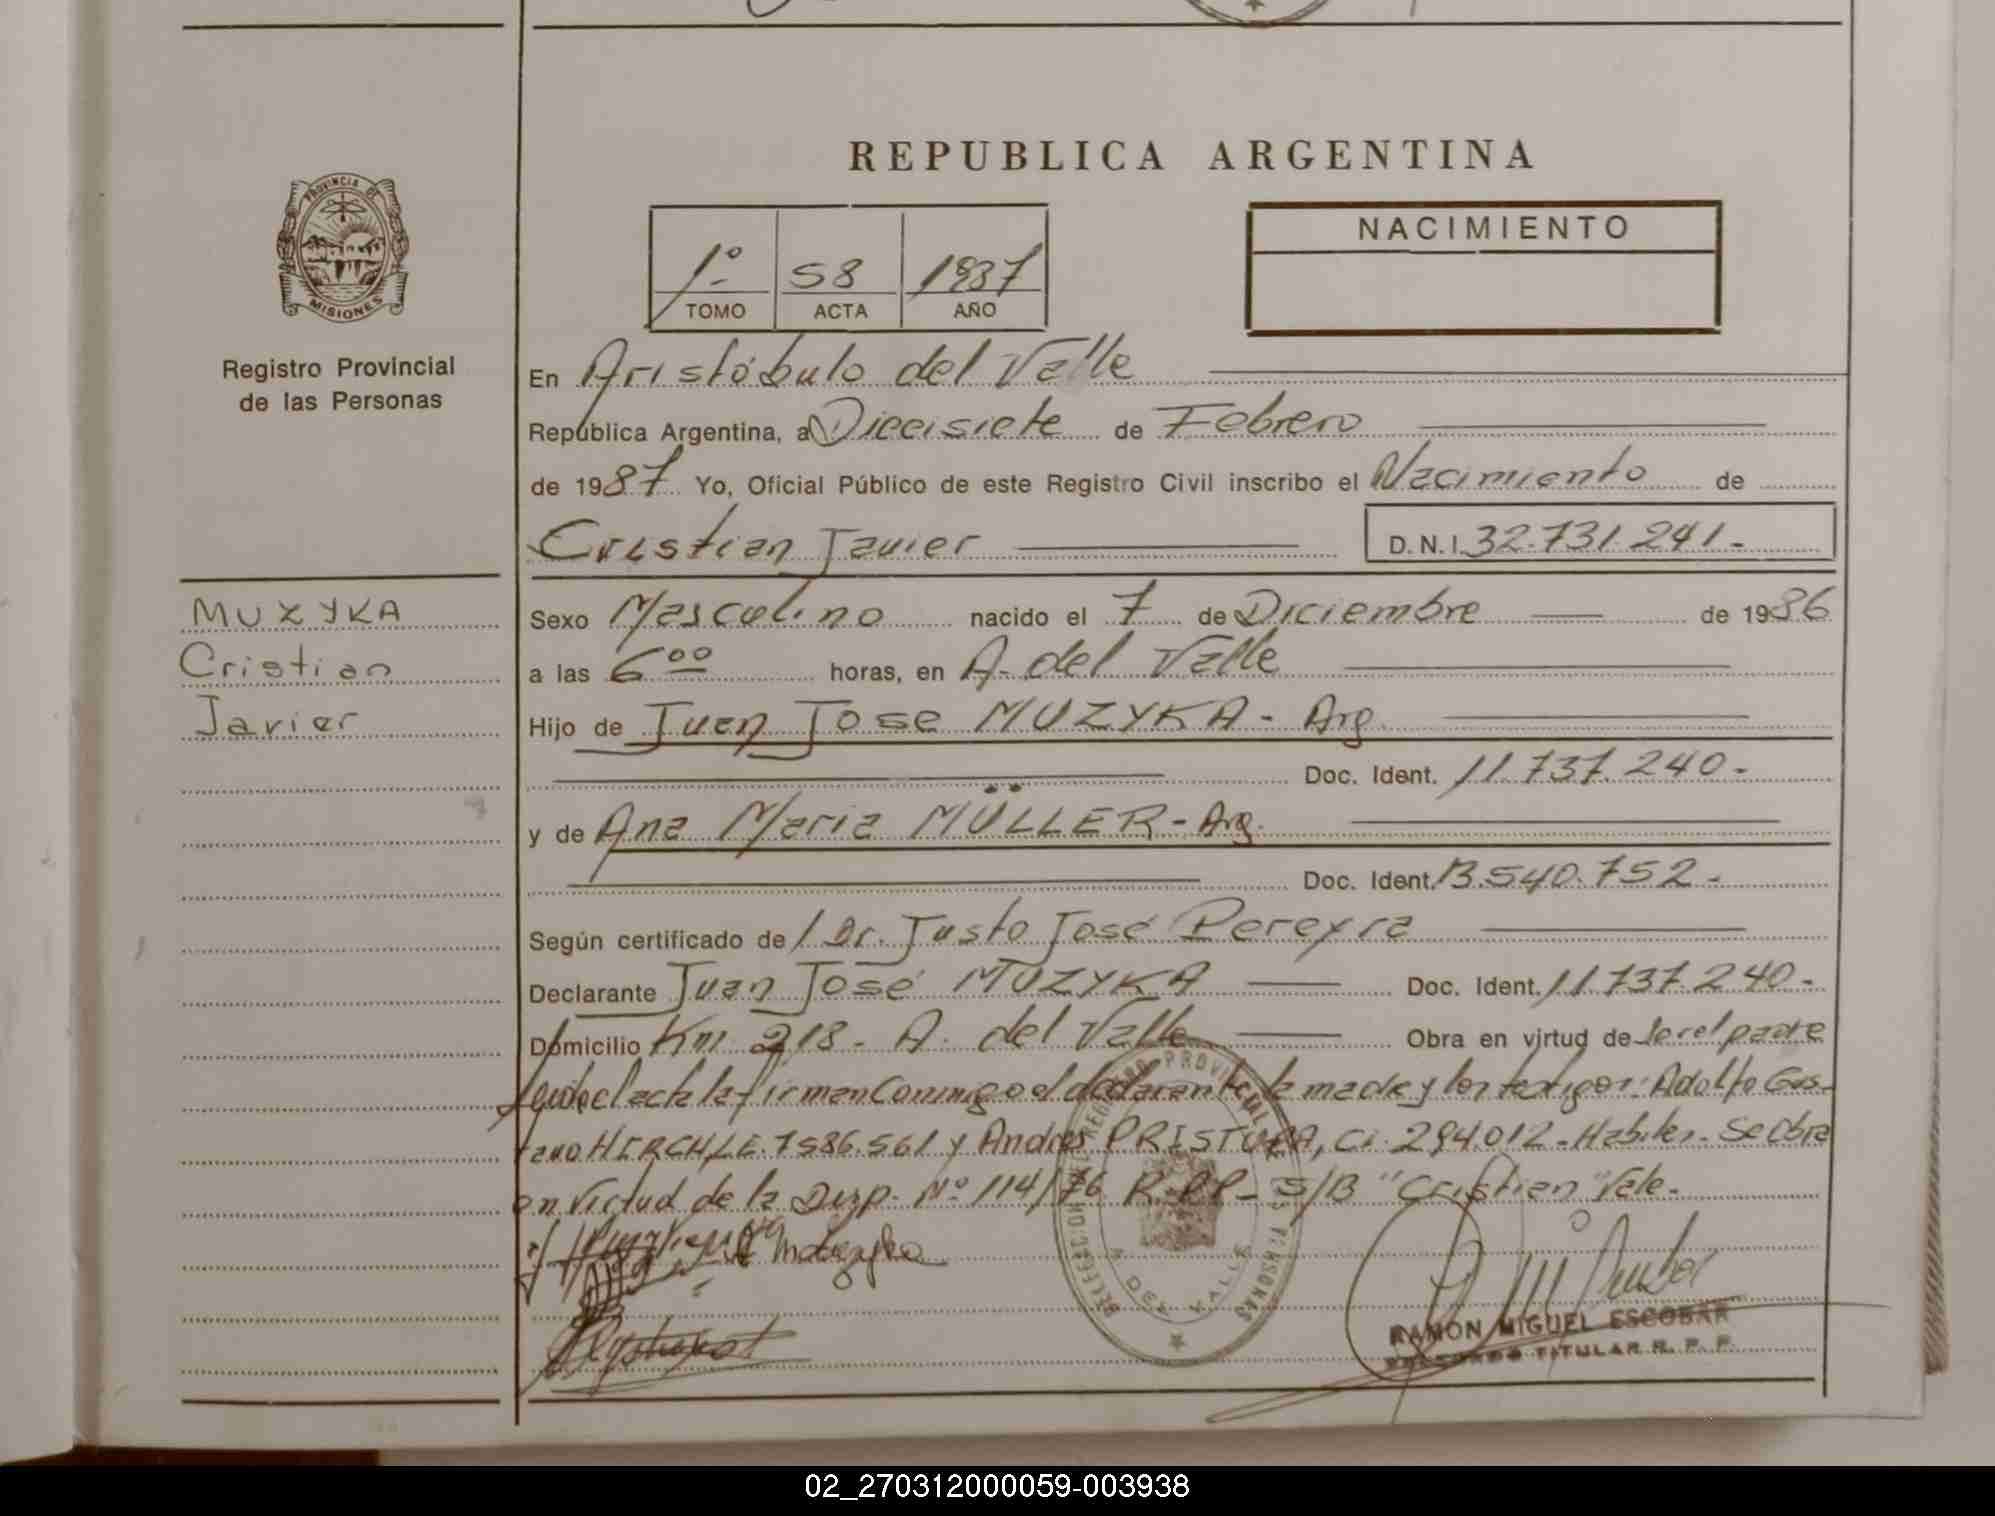 REPUBLICA ARGENTINA
PROVINCIA DE
MISIONES
Registro Provincial
de las Personas
1º 58 1987
TOMO ACTA AÑO
NACIMIENTO
En Aristóbulo del Valle
República Argentina, a Diecisiete de Febrero
de 1987 Yo, Oficial Público de este Registro Civil inscribo el Nacimiento de
Cristian Javier D.N.I. 32.731.241.-
MUZYKA
Cristian
Javier
Sexo Masculino nacido el 7 de Diciembre de 1986
a las 6 00 horas, en A. del Valle
Hijo de Juan Jose MUZYKA - Arg.
Doc. Ident. 11.737.240.-
y de Ana Maria MÜLLER - Arg.
Doc. Ident. 13.540.752.-
Según certificado de / Dr. Justo José Pereyra
Declarante Juan José MUZYKA Doc. Ident. 11.737.240.-
Domicilio Km. 218 - A. del Valle Obra en virtud de ser el padre
el acta la firman Conmigo el declarante la madre y los testigos: Adolfo Gus-
tavo 7586.561 y Andres PRISTUPA, Ci. 294.012 - Habiles. Se obra
en virtud de la Disp. Nº 114/76 R.P.P. - S/B "Cristian" Vale.-
REGISTRO PROVINCIAL
DELEGACION
PERSONAS
A DEL VALLE
RAMON MIGUEL ESCOBAR
TITULAR R. P. P.
02_270312000059-003938